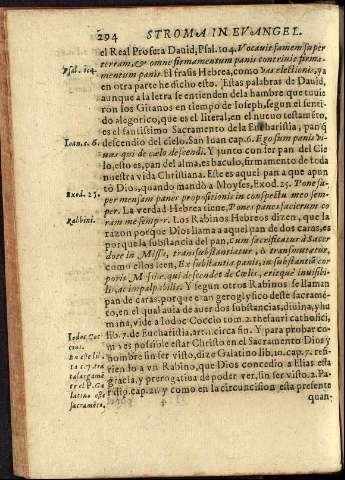 294 STROMA IN EVANGEL.
el Real Profeta Dauid, Psal. 104. Vocauit famem super
terram, & omne firmamentum panis contriuit firma-
Psal. 104. mentum panis. El frasis Hebrea, como vas electionis, ya
en otra parte he dicho esto. Estas palabras de Dauid,
aunque a la letra se entienden de la hambre que tuuie
ron los Gitanos en tiempo de Ioseph, segun el senti-
do alegorico, que es el literal, en el nueuo testamēto,
es el santissimo Sacramento de la Eucharistia, panq̄
Ioan. c. 6. descendio del cielo. San Iuan cap. 6. Ego sum panis vi-
uus qui de cælo descendi. Y junto con ser pan del Cie
lo, esto es, pan del alma, es baculo, firmamento de toda
nuestra vida Christiana. Este es aquel pan a que apun
Exod. 25. tò Dios, quando mandò a Moyses, Exod. 25. Pone su-
per mensam panes propositionis in conspectu meo sem-
per. La verdad Hebrea tiene, Panes facierum co
Rabbini. ram me semper. Los Rabinos Hebreos dizen, que la
razon porque Dios llama a aquel pan de dos caras, es
porque la substancia del pan, Cum sacrificatur à Sacer
dore in Missæ, transubstantiatur, ò transmutatur,
como ellos leen, Ex substantia panis, in substantiā cor
poris Messiæ, qui descendet de Cælis, eritque inuisibi-
lis, ac impalpabilis. Y segun otros Rabinos se llaman
pan de caras, porque en geroglyfico deste sacramē-
to, en el qual auia de auer dos substancias, diuina, y hu
mana, vide a Iodoco Cocleo tom. 2. thesauri catholici,
Iodoc. Coc lib. 7. de Eucharistia, art. 1. circa fin. Y para probar co-
cius. mo es possible estar Christo en el Sacramento Dios y
En este li. hombre sin ser visto, dize Galatino lib. 10. cap. 7. refi-
10. c. 7. tra riendo a vn Rabino, que Dios concedio a Elias esta
ta largamē gracia, y prerogatiua de poder ver, sin ser visto. 2. Pa-
te el P. Ga ralip. cap. 21. y como en la circuncision esta presente
latino este
sacramēto. quan-